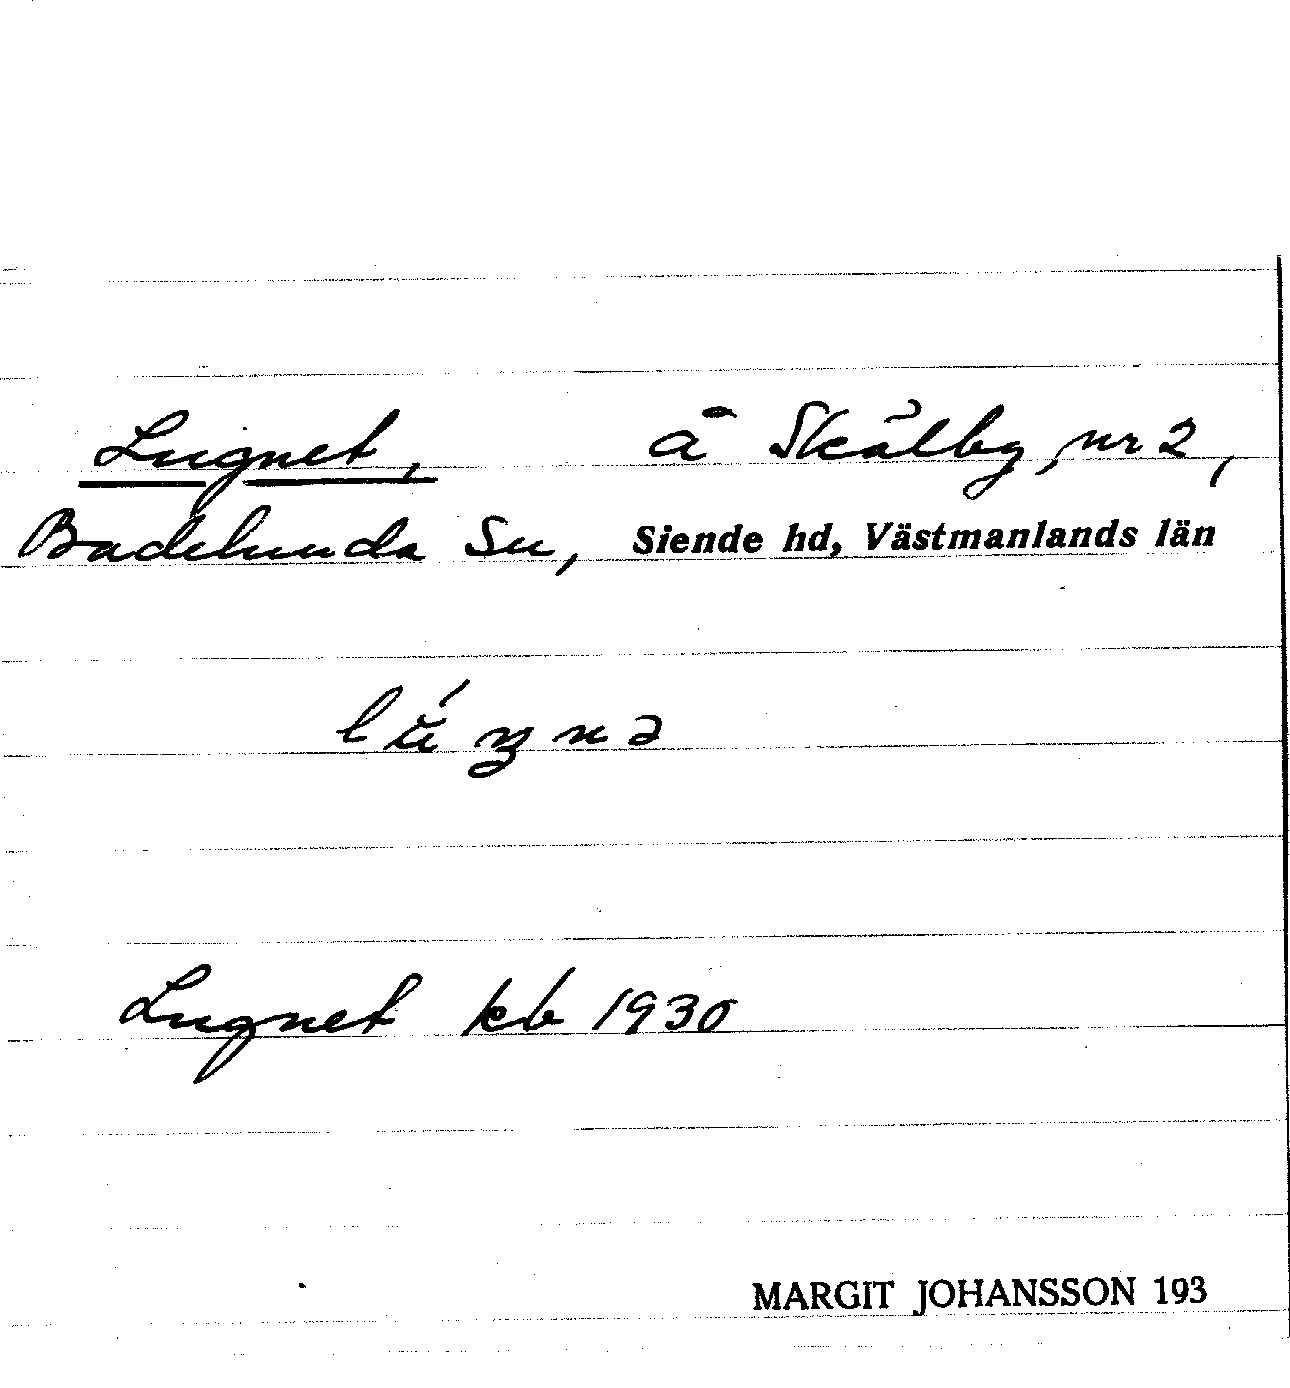 Lugnet, å Skälby, nr 2,
Badelunda Sn, Siende hd, Västmanlands län
lúŋnə
Lugnet kb 1930
MARGIT JOHANSSON 193